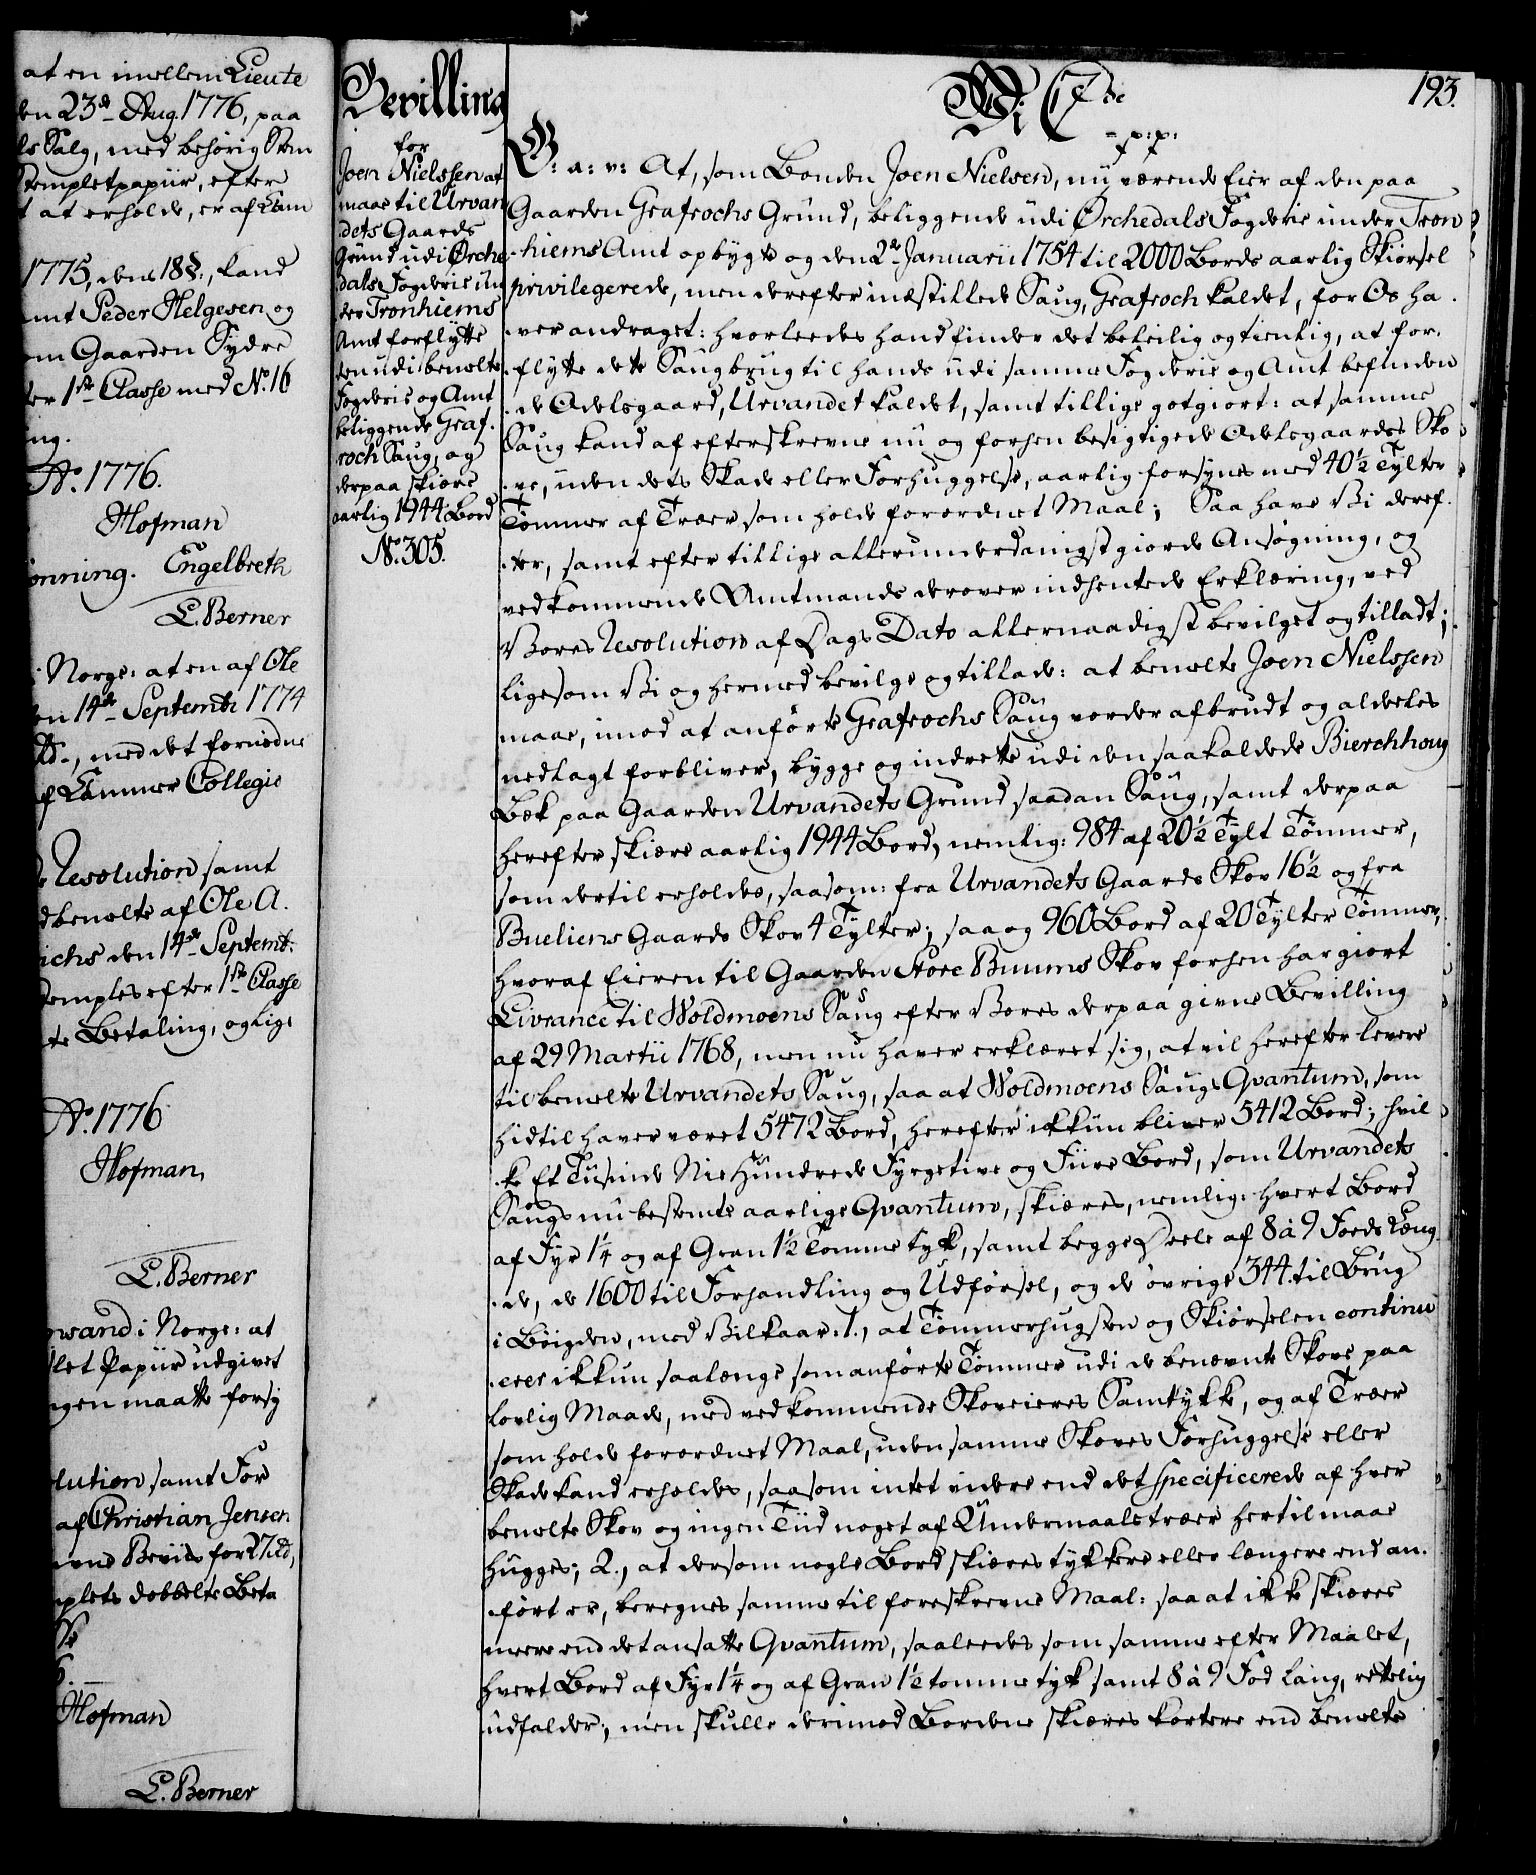 at en imellem Lieute
den 23de Aug. 1776, paa
ls Salg, med behörig Stem
Stempletpapiir, efter
t at erholde, er af Kam
1775, dens 18 §., kand
amt Peder Helgesen og
om Gaarden Sydre
ter 1ste Classe med No 16
ing.
Ao. 1776.
Hofman
önning. Engelbreth
L. Berner
Norge: at en af Ole
den 14de Septembr 1774
ds., med det fornödne
af Kammer Collegie
e Resolution samt
dbemelte af Ole A.
ichs den 14de Septemb:
temples efter 1ste Classe
te Betaling, og lige
Ao. 1776
Hofman,
L. Berner
nsand i Norge: at
let Papiir udgivet
ngen maatte forsy
olution samt For
af Christian Jensen
ene Beviis for 27 rd,
mplets dobbelte Beta
Hofman
L. Berner
Bevilling
for
Joen Nielssen at
maae til Urvan
dets Gaards
Grund udi Örche
dals Fogderie un
der Tronhiems
Amt forflytte
den udi bemelte
Fogderie og Amt
beliggende Graf.
roch Saug, og
derpaa skiære
aarlig 1944 Bord
No. 305.
193.
Wi C 7de
- p: p:
G: a: v: At, som Bonden Joen Nielsen, nu værende Eier af den paa
Gaarden Grafrochs Grund, beliggende udi Örchedals Fogderie under Tron
hiems Amt opbygte og den 2de Januarii 1754 til 2000 Bords aarlig Skiörsel
privilegerede, men derefter indstillede Saug, Grafroch kaldet, for Os ha.
ver andraget: hvorleedes hand finder det beleilig og tienlig, at for.
flytte dette Saugbrug til hands udi samme Fogderie og Amt befinden
de Odelsgaard, Urvandet kaldet, samt tillige gotgiort: at samme
Saug kand af efterskrevne nu og forhen besigtigede Odelsgaardes Sko
ve, uden dets Skade eller Forhuggelse, aarlig forsynes med 40 1/2 Tylter
Tömmer af Træer som holde forordnet Maal; Saa have Vi deref.
ter, samt efter tillige allerunderdanigst giorde Ansögning, og
vedkommende Amtmands derover indhentede Erklæring, ved
Vores Resolution af Dags Dato allernaadigst bevilget og tilladt;
ligesom Vi og hermed bevilge og tillade: at bemelte Joen Nielssen
maae, imod at anförte Grafrochs Saug vorder afbrudt og aldeeles
nedlagt forbliver, bygge og indrette udi den saakaldede Bierchhoug
Bek paa Gaarden Urvandets Grund saadan Saug, samt derpaa
herefter skiære aarlig 1944 Bord, nemlig: 984 af 20 1/2 Tylt Tömmer,
som dertil erholdes, saasom: fra Urvandets Gaards Skov 16 1/2 og fra
Bueliens Gaards Skov 4 Tylter; saa og 960 Bord af 20 Tylter Tömmer,
hvoraf Eieren til Gaarden Store Buums Skov forhen har giort
Livrance til Woldmoens Saug efter Vores derpaa givne Bevilling
af 29 Martii 1768, men nu haver erklæret sig, at vil herefter levere
til bemelte Urvandets Saug, saa at Woldmoens Saugs Qvantum, som
hidtil haver været 5472 Bord, herefter ikkun bliver 5412 Bord; hvil
ke Et Tusinde Nie Hundrede Fyrgetive og Fiire Bord, som Urvandets
Saugs nu bestemte aarlige Qvantum, skiæres, nemlig: hvert Bord
af Fyr 1 1/4 og af Gran 1 1/2 Tomme tyk, samt begge Deele af 8 à 9 Foeds Læng.
de, de 1600 til Forhandling og Udförsel, og de övrige 344 til Brug
i Böigden, med Vilkaar: 1., at Tömmerhugsten og Skiörselen continu
erer ikkun saalænge som anförte Tömmer udi de benævnte Skove paa
lovlig Maade, med vedkommende Skoveieres Samtykke, og af Træer
som holde forordnet Maal, uden samme Skoves Forhuggelse eller
Skade kand erholdes, saasom intet videre end det specificerede af hver
bemelte Skov og ingen Tiid noget af Undermaalstræer hertil maae
hugges; 2., at dersom nogle Bord skiæres tykkere eller længere end an.
fört er, beregnes samme til foreskrevne Maal: saa at ikke skiæres
meere end det ansatte Qvantum, saaleedes som samme efter Maalet,
hvert Bord af Fyr 1 1/4 og af Gran 1 1/2 tomme tyk samt 8 à 9 Fod lang, rettelig
udfalder, men skulle derimod Bordene skiæres kortere end bemelte